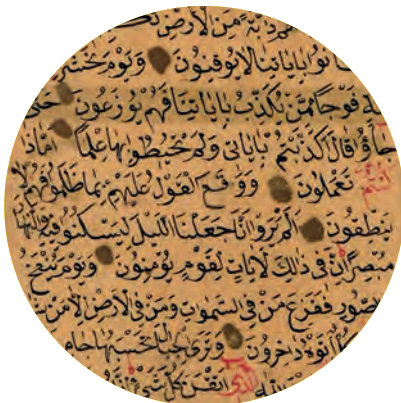 دابة من الارض
كانوا باياتنا لا يوقنون ويوم نحشر
فوجا ممن يكذب باياتنا فهم يوزعون حتى
جاؤ قال اكذبتم باياتى ولم تحيطوا بها علما اماذا
كنتم تعملون ووقع القول عليهم بما ظلموا فهم لا
ينطقون الم يروا انا جعلنا الليل ليسكنوا فيه والنها
مبصرا ان فى ذالك لايات لقوم يومنون ويوم ينفخ
الصور ففزع من فى السموات ومن فى الارض الا من
اتوه داخرون وترى الجبال تحسبها جام
الله الذى اتقن كل شئ